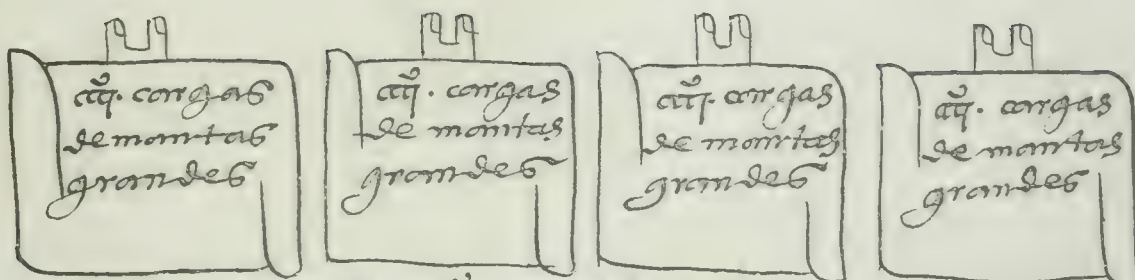 cargas
de mantas
grandes
cargas
de mantas
grandes
cargas
de mantas
grandes
cargas
de mantas
grandes